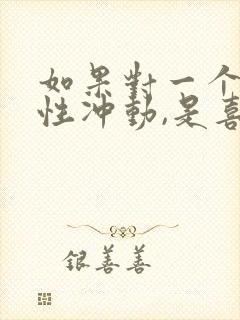 如果對一个
性沖動,是喜
银善善